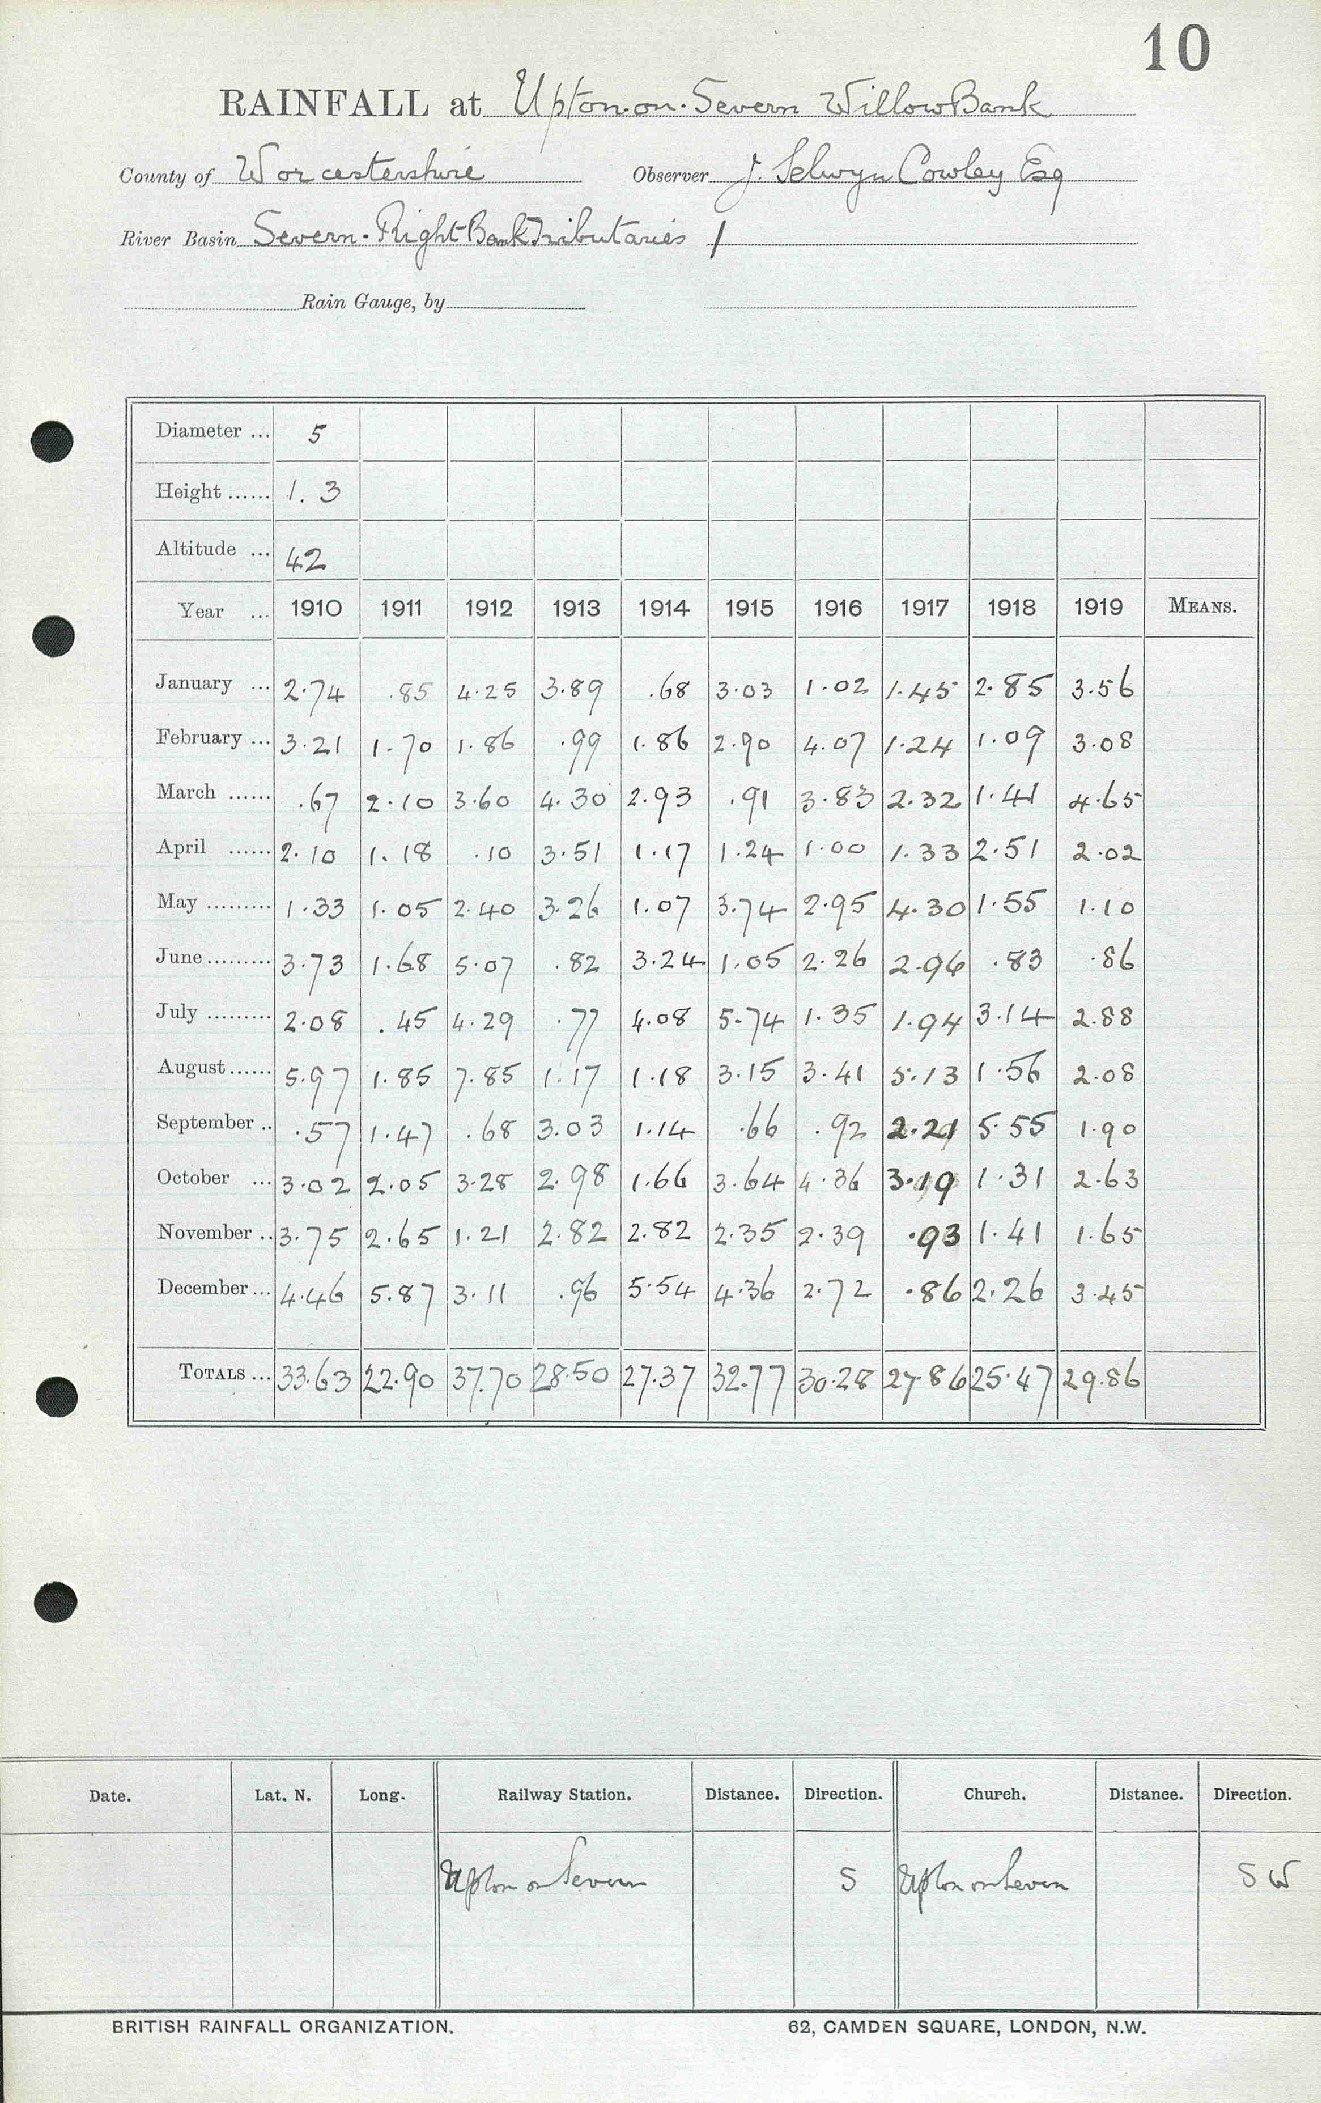 10
RAINFALL at Upton-on-Severn Willow Bank
County of Worcestershire Observer J. Selwyn Cowley Esq
River Basin Severn-Right Bank Tributaries 1
Rain Gauge, by
Diameter ... 5
Height ...... 1.3
Altitude ... 42
Year ... 1910 1911 1912 1913 1914 1915 1916 1917 1918 1919 MEANS.
January ... 2.74 .85 4.25 3.89 .68 3.03 1.02 1.45 2.85 3.56
February ... 3.21 1.70 1.86 .99 1.86 2.90 4.07 1.24 1.09 3.08
March ...... .67 2.10 3.60 4.30 2.93 .91 3.83 2.32 1.41 4.65
April ...... 2.10 1.18 .10 3.51 1.17 1.24 1.00 1.33 2.51 2.02
May ......... 1.33 1.05 2.40 3.26 1.07 3.74 2.95 4.30 1.55 1.10
June ......... 3.73 1.68 5.07 .82 3.24 1.05 2.26 2.96 .83 .86
July ......... 2.08 .45 4.29 .77 4.08 5.74 1.35 1.94 3.14 2.88
August ...... 5.97 1.85 7.85 1.17 1.18 3.15 3.41 5.13 1.56 2.08
September .. .57 1.47 .68 3.03 1.14 .66 .92 2.21 5.55 1.90
October ... 3.02 2.05 3.28 2.98 1.66 3.64 4.36 3.19 1.31 2.63
November .. 3.75 2.65 1.21 2.82 2.82 2.35 2.39 .93 1.41 1.65
December ... 4.46 5.87 3.11 .96 5.54 4.36 2.72 .86 2.26 3.45
TOTALS ... 33.63 22.90 37.70 28.50 27.37 32.77 30.28 27.86 25.47 29.86
Date. Lat. N. Long. Railway Station. Distance. Direction. Church. Distance. Direction.
Upton on Severn S Upton on Severn SW
BRITISH RAINFALL ORGANIZATION. 62, CAMDEN SQUARE, LONDON, N.W.